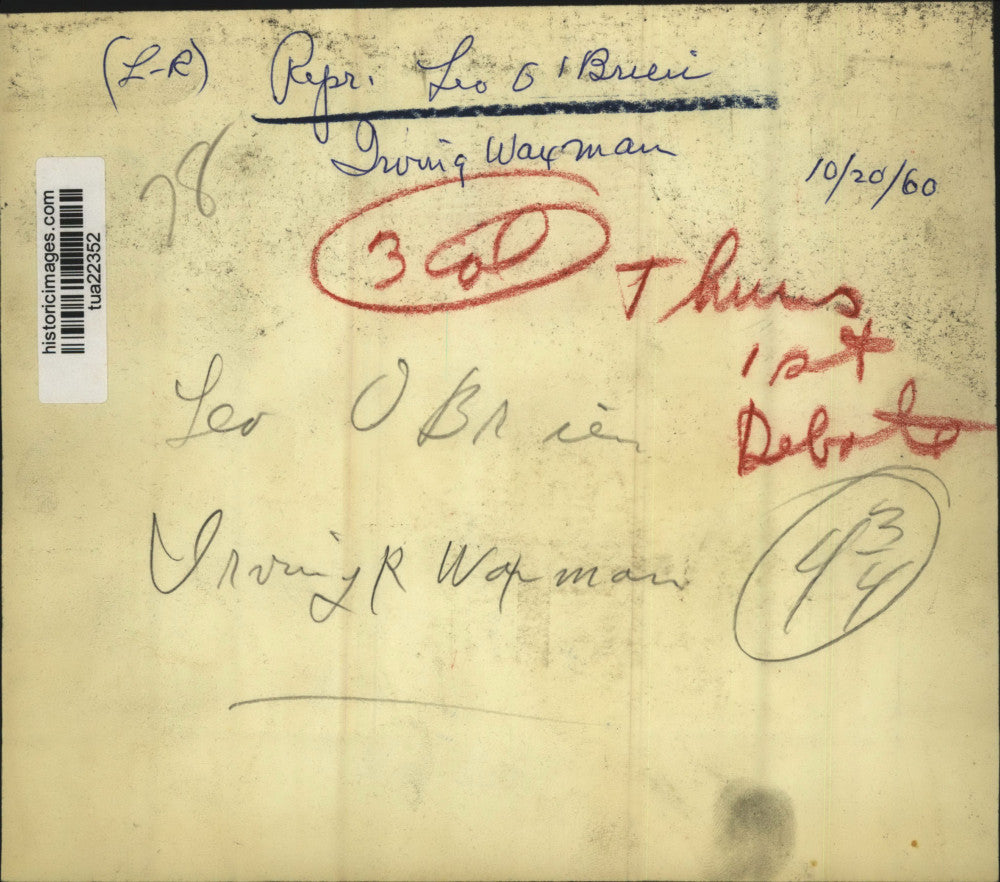 (L-R) Repr. Leo O'Brien
Irving Waxman
10/20/60
78
3 col
Thurs
1st
Debate
historicimages.com
tua22352
Leo O BRien
Irving R Waxman
4 3/4